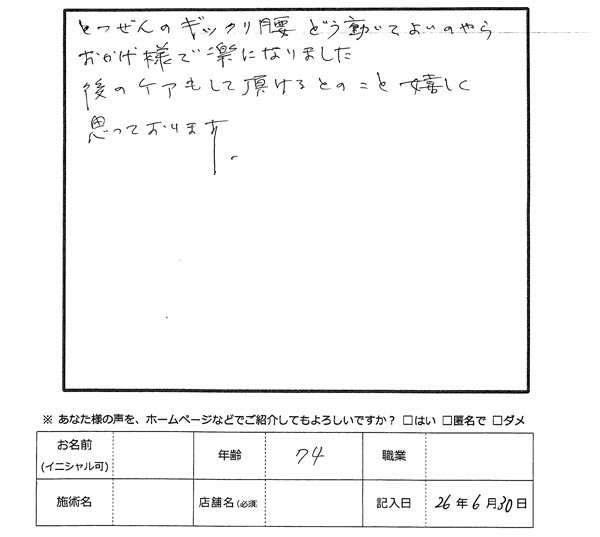 とつぜんのギックリ腰どう動いてよいのやら
おかげ様で楽になりました
後のケアもして頂けるとのこと嬉しく
思っております。
※ あなた様の声を、ホームページなどでご紹介してもよろしいですか? □はい □匿名で □ダメ
お名前 (イニシャル可) 年齢 74 職業
施術名 店舗名(必須) 記入日 26年6月30日